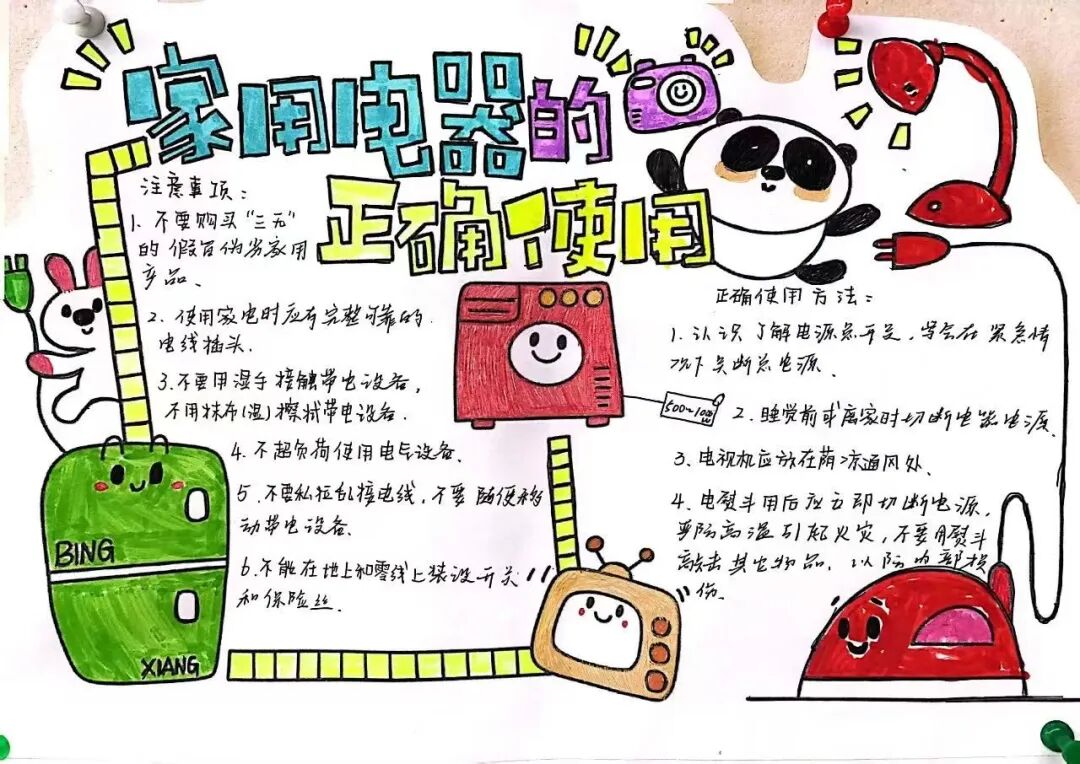 家用电器的
正确使用
注意事项：
1、不要购买“三无”
的假冒伪劣家用
产品、
2、使用家电时应有完整可靠的
电线插头、
3、不要用湿手接触带电设备，
不用抹布(湿)擦拭带电设备、
4、不超负荷使用电气设备、
5、不要私拉乱接电线，不要随便移
动带电设备、
6、不能在地上和零线上装设开关
和保险丝、
正确使用方法：
1、认识了解电源总开关，学会在紧急情
况下关断总电源、
500~100
2、睡觉前或离家时切断电器电源、
3、电视机应放在荫凉通风处、
4、电熨斗用后应立即切断电源，
严防高温引起火灾，不要用熨斗
敲击其它物品，以防内部损
伤、
BING
XIANG